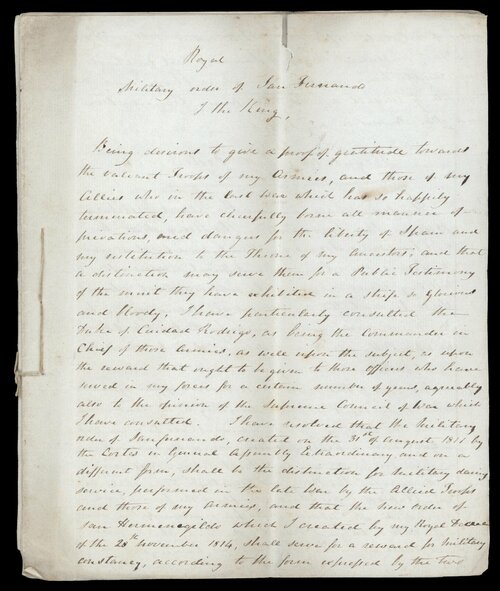 Royal
Military order of San Fernando
I the King,
Being desirous to give a proof of gratitude towards
the valiant Troops of my Armies, and those of my
Allies who in the last War which has so happily
terminated, have cheerfully borne all manner of
privations, and danger for the liberty of Spain and
my restitution to the Throne of my Ancestors; and that
a distinction may serve them for a Public Testimony
of the merit they have exhibited in a strife so glorious
and bloody; I have particularly consulted the
Duke of Cuidad Rodrigo, as being the Commander in
Chief of those Armies, as well upon the subject, as upon
the reward that ought to be given to those officers who have
served in my forces for a certain number of years, agreeably
also to the opinion of the Supreme Council of War which
I have consulted. I have resolved that the Military
order of San fernando, created on the 31st of August 1811 by
the Cortes in General Assembly Extraordinary and on a
different form, shall be the distinction for Military daring
service, performed in the late War by the Allied Troops
and those of my Armies, and that the new order of
San Hermenegildo which I created by my Royal Decree
of the 28th November 1814, shall serve for a reward for Military
constancy, according to the form expressed by the two